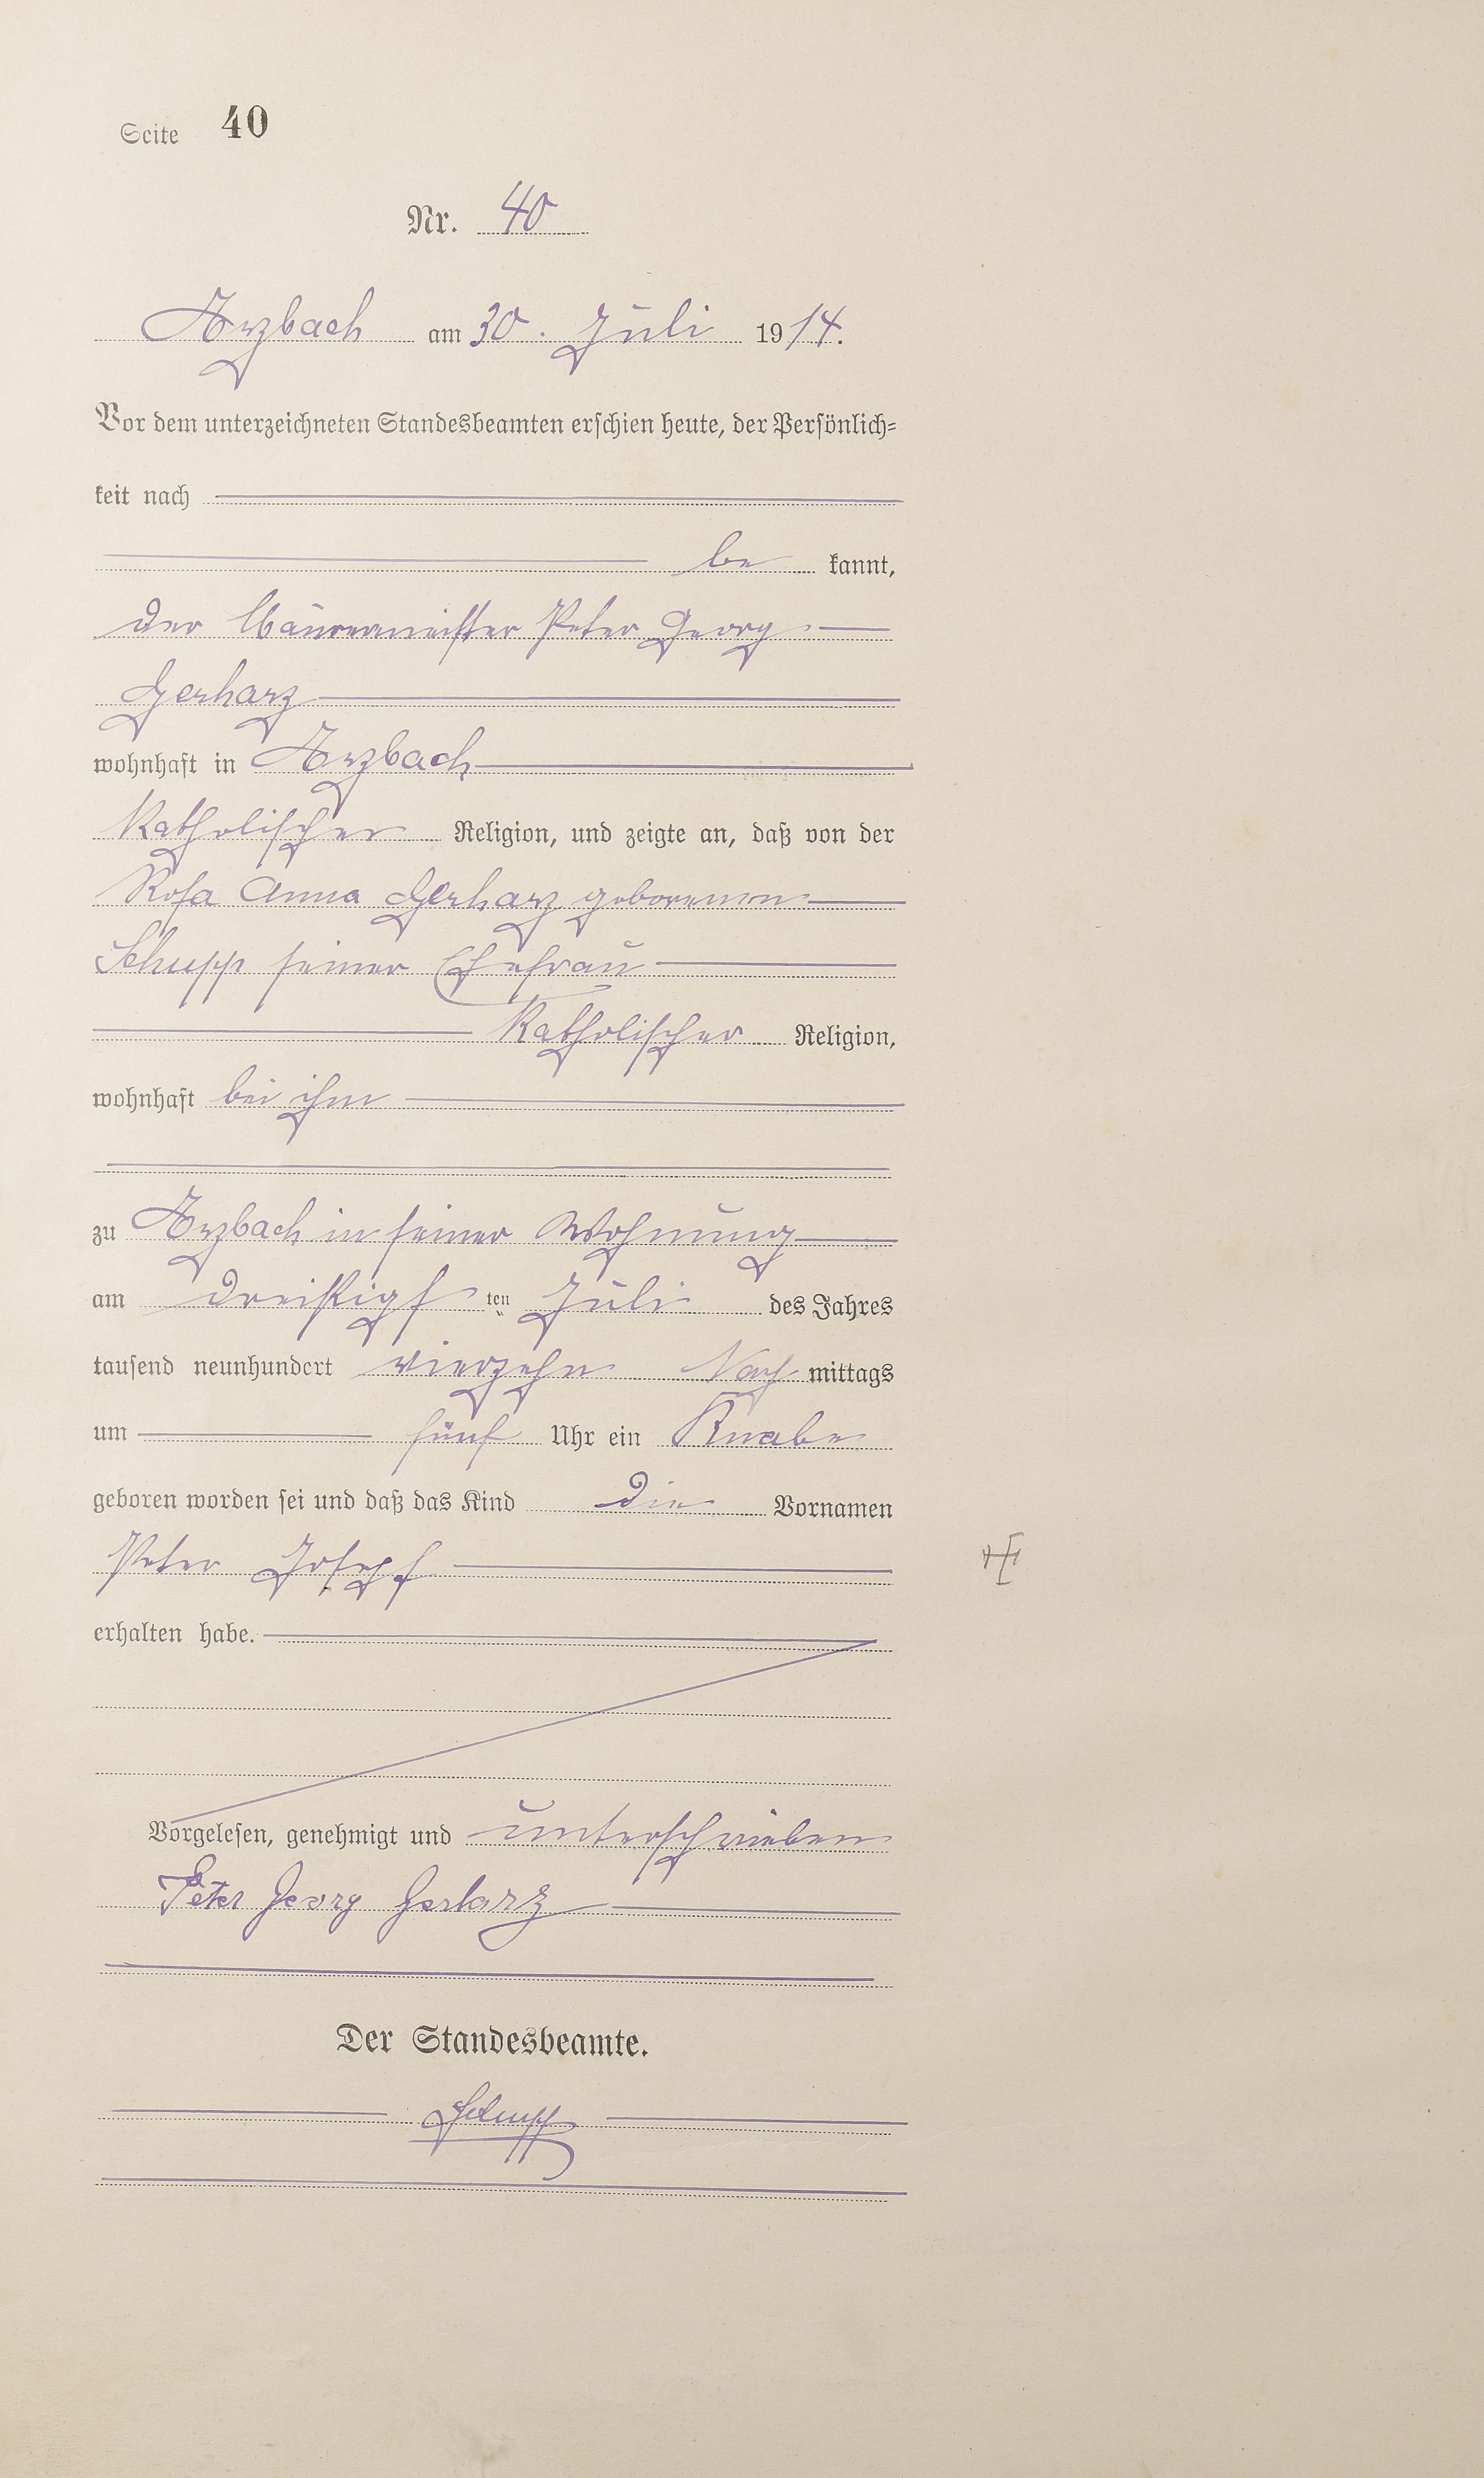 Seite 40
Nr. 40
Arzbach am 30. Juli 1914.
Vor dem unterzeichneten Standesbeamten erschien heute, der Persönlich=
keit nach
be kannt,
der Maurermeister Peter Georg
Gerharz
wohnhaft in Arzbach
Katholischer Religion, und zeigte an, daß von der
Rosa Anna Gerharz geborenen
Schupp seiner Ehefrau
Katholischer Religion,
wohnhaft bei ihm
zu Arzbach in seiner Wohnung
am dreißigsten Juli des Jahres
tausend neunhundert vierzehn Nachmittags
um fünf Uhr ein Knabe
geboren worden sei und daß das Kind die Vornamen
Peter Josepf
erhalten habe.
Vorgelesen, genehmigt und unterschrieben
Peter Georg Gerharz
Der Standesbeamte.
Schupp